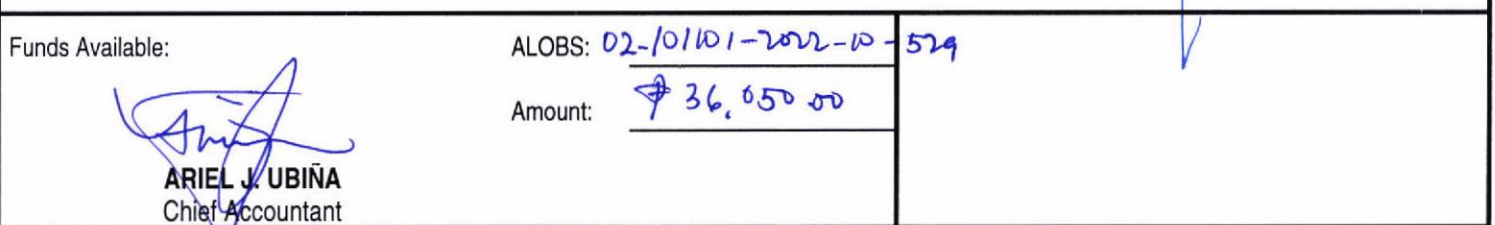 Funds Available:
ALOBS: 02-101101-2022-10-529
Amount: ₱ 36,050.00
ARIEL J. UBIÑA
Chief Accountant